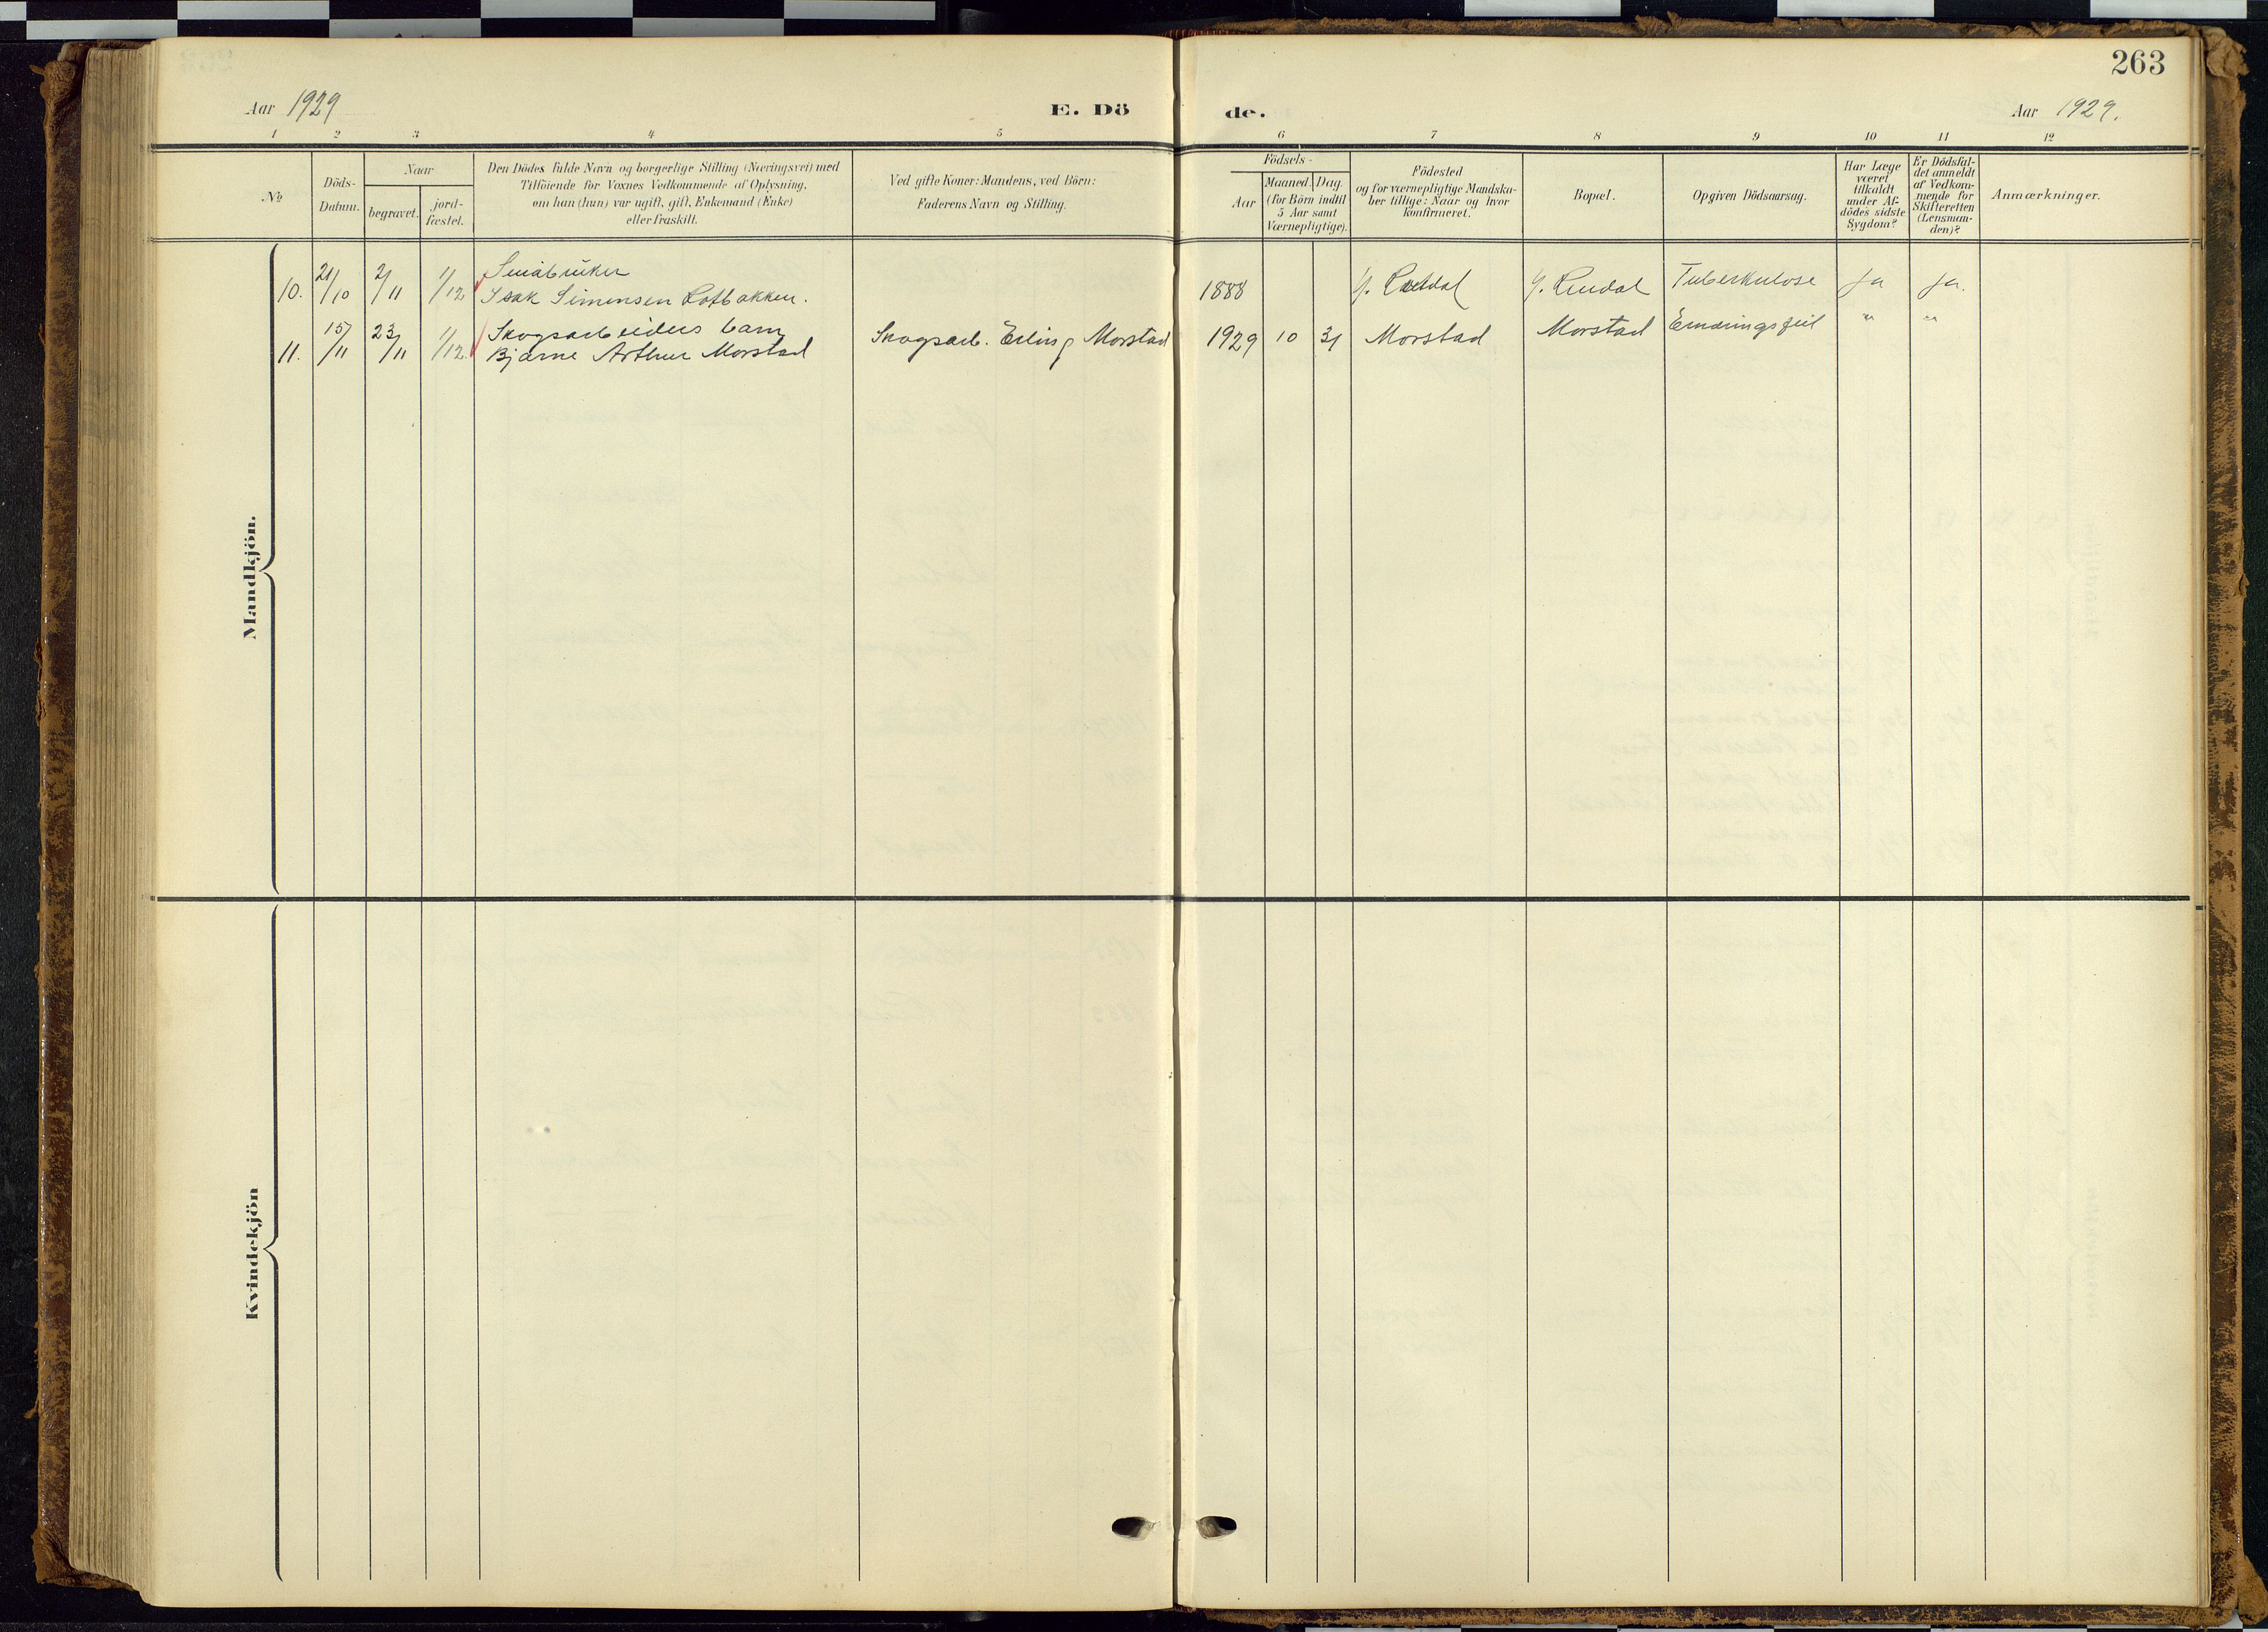 263
Aar 1929
E. Dö
de.
Aar 1929.
1 2 3 4 5 6 7 8 9 10 11 12
No
Döds-
Datum.
Naar
begravet.
jord-
fæstet.
Den Dödes fulde Navn og borgerlige Stilling (Næringsvei) med
Tilföiende for Voxnes Vedkommende af Oplysning,
om han (hun) var ugift, gift, Enkemand (Enke)
eller fraskilt.
Ved gifte Koner: Mandens, ved Börn:
Faderens Navn og Stilling.
Födsels-
Aar
Maaned. Dag.
(for Börn indtil
5 Aar samt
Værnepligtige).
Födested
og for værnepligtige Mandska-
ber tillige: Naar og hvor
konfirmeret.
Bopæl.
Opgiven Dödsaarsag.
Har Læge
været
tilkaldt
under Af-
dödes sidste
Sygdom?
Er Dödsfal-
det anmeldt
af Vedkom-
mende for
Skifteretten
(Lensman-
den)?
Anmærkninger.
Mandkjön.
Småbruker
10. 21/10 2/11 1/12 Isak Simensen Lofbakken. 1888 Tuberkulose Ja Ja.
Skogsarbeiders barn
11. 15/11 23/11 1/12. Bjarne Arthur Morstad Skogsarb. Erling Morstad 1929 10 31 Morstad Morstad Ernæringsfeil " "
Kvindekjön